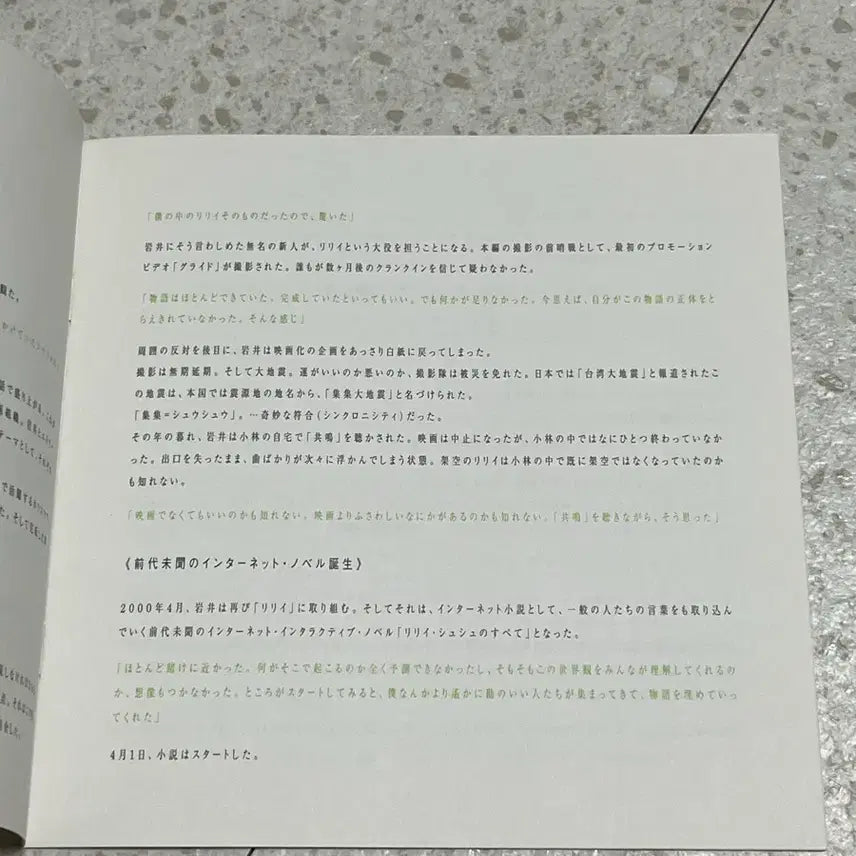 「僕の中のリリイそのものだったので、驚いた」
岩井にそう言わしめた無名の新人が、リリイという大役を担うことになる。本編の撮影の前哨戦として、最初のプロモーション
ビデオ「グライド」が撮影された。誰もが数ヶ月後のクランクインを信じて疑わなかった。
「物語はほとんどできていた。完成していたといってもいい。でも何かが足りなかった。今思えば、自分がこの物語の正体をと
らえきれていなかった。そんな感じ」
周囲の反対を後目に、岩井は映画化の企画をあっさり白紙に戻ってしまった。
撮影は無期延期。そして大地震。運がいいのか悪いのか、撮影隊は被災を免れた。日本では「台湾大地震」と報道されたこ
の地震は、本国では震源地の地名から、「集集大地震」と名づけられた。
「集集=シュウシュウ」。…奇妙な符合(シンクロニシティ)だった。
その年の暮れ、岩井は小林の自宅で「共鳴」を聴かされた。映画は中止になったが、小林の中ではなにひとつ終わっていなか
った。出口を失ったまま、曲ばかりが次々に浮かんでしまう状態。架空のリリイは小林の中で既に架空ではなくなっていたのか
も知れない。
「映画でなくてもいいのかも知れない。映画よりふさわしいなにかがあるのかも知れない。「共鳴」を聴きながら、そう思った」
《前代未聞のインターネット・ノベル誕生》
2000年4月、岩井は再び「リリイ」に取り組む。そしてそれは、インターネット小説として、一般の人たちの言葉をも取り込ん
でいく前代未聞のインターネット・インタラクティブ・ノベル「リリイ・シュシュのすべて」となった。
「ほとんど賭けに近かった。何がそこで起こるのか全く予測できなかったし、そもそもこの世界観をみんなが理解してくれるの
か、想像もつかなかった。ところがスタートしてみると、僕なんかより遙かに勘のいい人たちが集まってきて、物語を埋めていっ
てくれた」
4月1日、小説はスタートした。